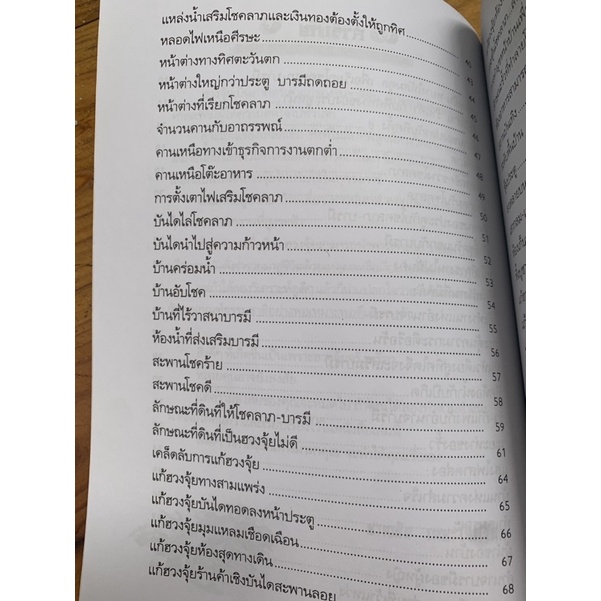 แหล่งน้ำเสริมโชคลาภและเงินทองต้องตั้งให้ถูกทิศ
หลอดไฟเหนือศีรษะ
หน้าต่างทางทิศตะวันตก
หน้าต่างใหญ่กว่าประตู บารมีถดถอย
หน้าต่างที่เรียกโชคลาภ 46
จำนวนคานกับอาถรรพณ์ 47
คานเหนือทางเข้าธุรกิจการงานตกต่ำ 48
คานเหนือโต๊ะอาหาร 49
การตั้งเตาไฟเสริมโชคลาภ 50
บันไดไล่โชคลาภ 51
บันไดนำไปสู่ความก้าวหน้า 52
บ้านคร่อมน้ำ 53
บ้านอับโชค 54
บ้านที่ไร้วาสนาบารมี 55
ห้องน้ำที่ส่งเสริมบารมี 56
สะพานโชคร้าย 57
สะพานโชคดี 58
ลักษณะที่ดินที่ให้โชคลาภ-บารมี 59
ลักษณะที่ดินที่เป็นฮวงจุ้ยไม่ดี 61
เคล็ดลับการแก้ฮวงจุ้ย 64
แก้ฮวงจุ้ยทางสามแพร่ง 65
แก้ฮวงจุ้ยบันไดทอดลงหน้าประตู 66
แก้ฮวงจุ้ยมุมแหลมเชือดเฉือน 67
แก้ฮวงจุ้ยห้องสุดทางเดิน 68
แก้ฮวงจุ้ยร้านค้าเชิงบันไดสะพานลอย